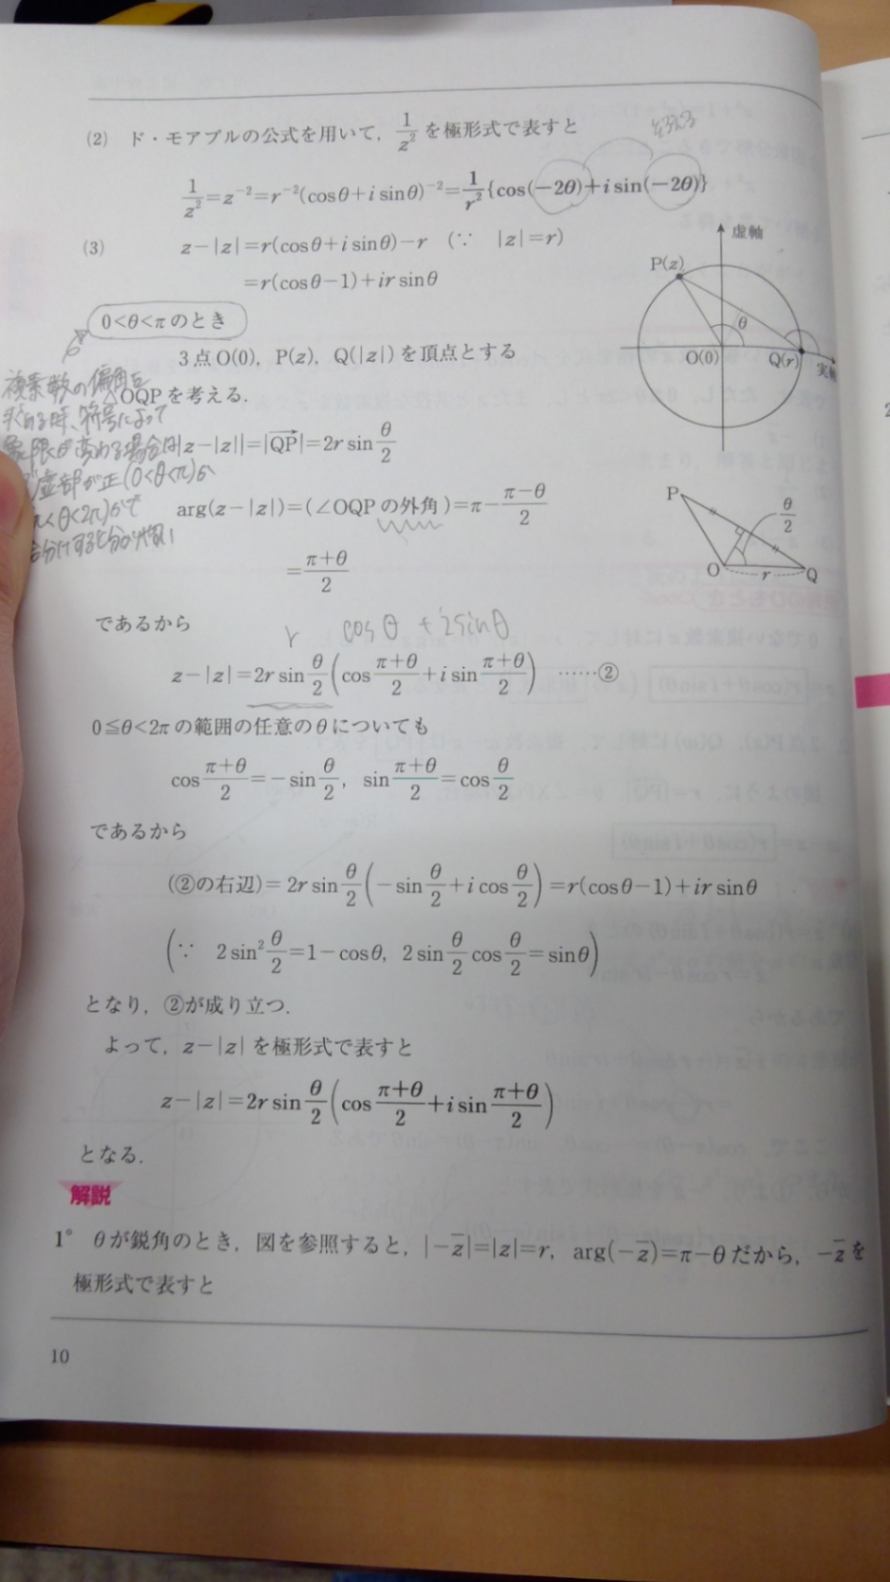 (2) ド・モアブルの公式を用いて，1/z² を極形式で表すと
1/z²=z⁻²=r⁻²(cosθ+i sinθ)⁻²=1/r²{cos(−2θ)+i sin(−2θ)}
(3) z−|z|=r(cosθ+i sinθ)−r (∵ |z|=r)
=r(cosθ−1)+ir sinθ
虚軸
P(z)
θ
O(0)
Q(r)
実軸
0<θ<πのとき
3点O(0)，P(z)，Q(|z|)を頂点とする
複素数の偏角を
OQPを考える．
求める時、符号によって
|z−|z||=|QP→|=2r sin θ/2
虚部が正(0<θ<π)か
<θ<2π)かで
arg(z−|z|)=(∠OQPの外角)=π−(π−θ)/2
=(π+θ)/2
P
θ/2
O
r
Q
であるから
r cosθ + i sinθ
z−|z|=2r sin θ/2 (cos (π+θ)/2 + i sin (π+θ)/2) ……②
0≦θ<2πの範囲の任意のθについても
cos (π+θ)/2=−sin θ/2，sin (π+θ)/2=cos θ/2
であるから
(②の右辺)=2r sin θ/2 (−sin θ/2+i cos θ/2)=r(cosθ−1)+ir sinθ
(∵ 2 sin² θ/2=1−cosθ，2 sin θ/2 cos θ/2=sinθ)
となり，②が成り立つ．
よって，z−|z| を極形式で表すと
z−|z|=2r sin θ/2 (cos (π+θ)/2+i sin (π+θ)/2)
となる．
解説
1° θが鋭角のとき，図を参照すると，|−z̅|=|z|=r，arg(−z̅)=π−θだから，−z̅を
極形式で表すと
10